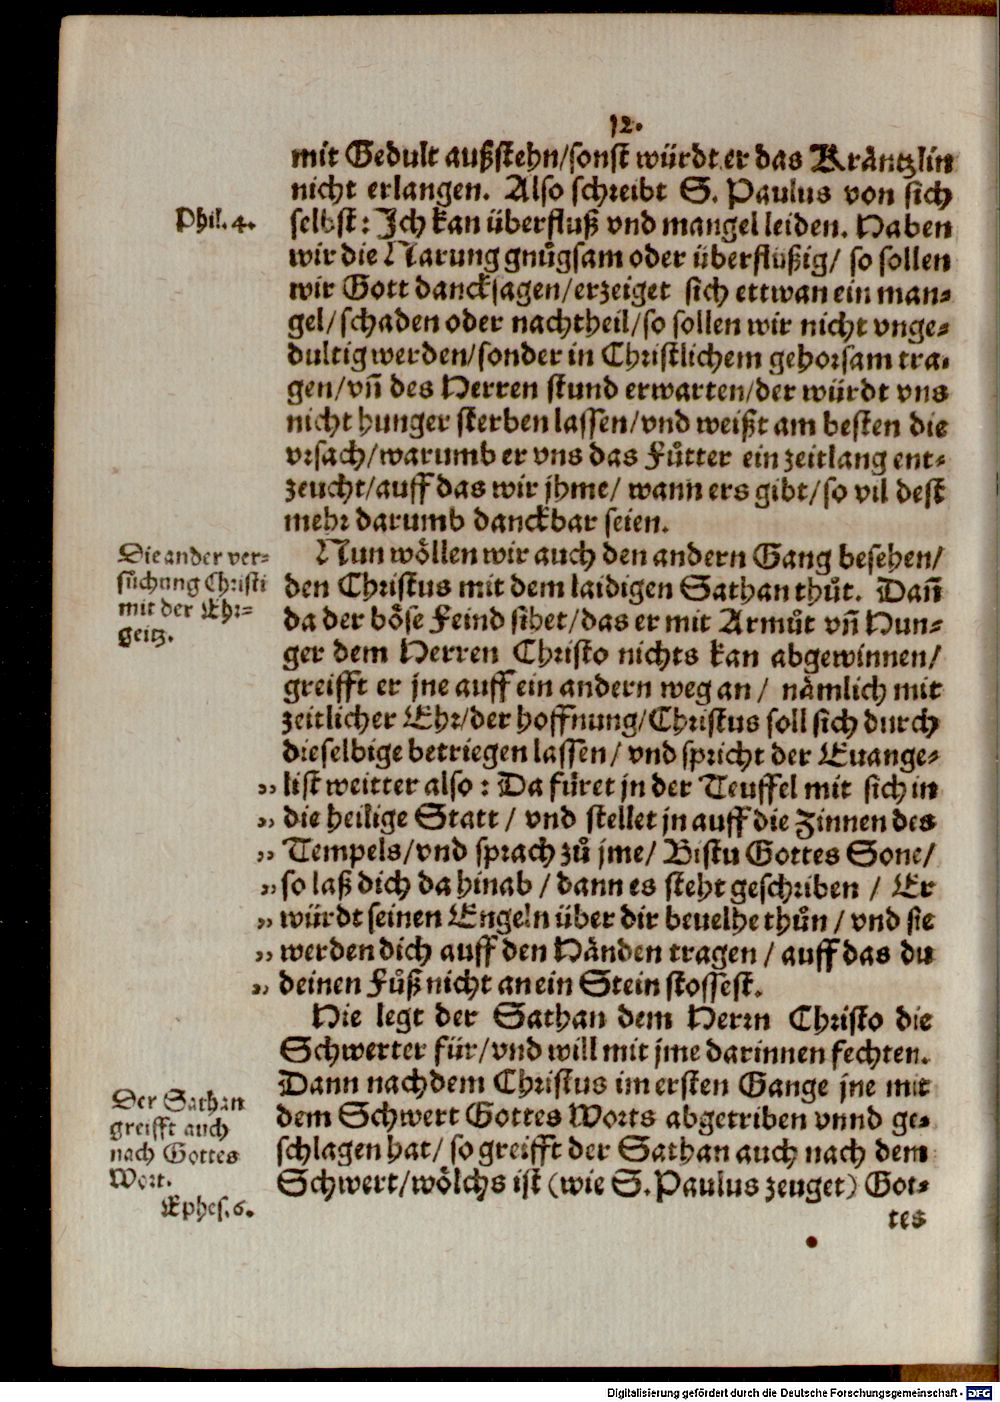 12.
mit Gedult außstehn/sonst würdt er das Kräntzlin
nicht erlangen. Also schreibt S. Paulus von sich
Phil. 4.
selbst: Ich kan überfluß vnd mangel leiden. Haben
wir die Narung gnůgsam oder überflüßig/ so sollen
wir Gott dancksagen/erzeiget sich ettwan ein man-
gel/schaden oder nachtheil/so sollen wir nicht vnge-
dultig werden/sonder in Christlichem gehorsam tra-
gen/vñ des Herren stund erwarten/der würdt vns
nicht hunger sterben lassen/vnd weißt am besten die
vrsach/warumb er vns das Fůtter ein zeitlang ent-
zeucht/auff das wir jhme/ wann ers gibt/so vil dest
mehr darumb danckbar seien.
Die ander ver-
sůchung Christi
mit der Ehr-
geitz.
Nun wöllen wir auch den andern Gang besehen/
den Christus mit dem laidigen Sathan thůt. Dañ
da der böse Feind sihet/das er mit Armůt vñ Hun-
ger dem Herren Christo nichts kan abgewinnen/
greifft er jne auff ein andern weg an/ nämlich mit
zeitlicher Ehr/der hoffnung/Christus soll sich durch
dieselbige betriegen lassen/ vnd spricht der Euange-
„ list weitter also: Da füret jn der Teuffel mit sich in
„ die heilige Statt/ vnd stellet jn auff die Zinnen des
„ Tempels/vnd sprach zů jme/ Bistu Gottes Sone/
„ so laß dich da hinab/ dann es steht geschriben/ Er
„ würdt seinen Engeln über dir beuelhe thůn/ vnd sie
„ werden dich auff den Händen tragen/ auff das du
„ deinen Fůß nicht an ein Stein stossest.
Hie legt der Sathan dem Herrn Christo die
Schwerter für/vnd will mit jme darinnen fechten.
Dann nachdem Christus im ersten Gange jne mit
dem Schwert Gottes Worts abgetriben vnnd ge-
schlagen hat/ so greifft der Sathan auch nach dem
Schwert/wölchs ist (wie S. Paulus zeuget) Got-
Der Sathan
greifft auch
nach Gottes
Wort.
Ephes. 6.
tes
Digitalisierung gefördert durch die Deutsche Forschungsgemeinschaft - DFG